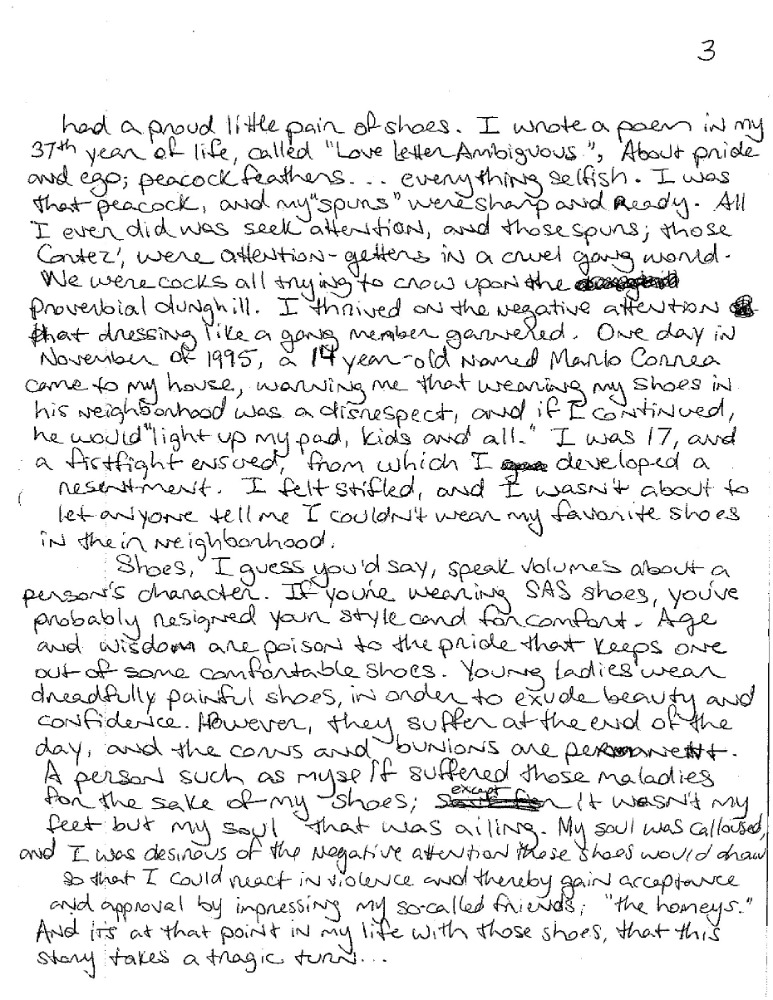 3
had a proud little pair of shoes. I wrote a poem in my
37th year of life, called "Love Letter Ambiguous", About pride
and ego; peacock feathers... everything selfish. I was
that peacock, and my "spurs" were sharp and Ready. All
I ever did was seek attention, and those spurs; those
Cortez', were attention-getters in a cruel gang world.
We were cocks all trying to crow upon the
proverbial dunghill. I thrived on the negative attention
that dressing like a gang member garnered. One day in
November of 1995, a 14 year-old named Mario Correa
came to my house, warning me that wearing my shoes in
his neighborhood was a disrespect, and if I continued,
he would "light up my pad, kids and all." I was 17, and
a fistfight ensued, from which I developed a
resentment. I felt stifled, and I wasn't about to
let anyone tell me I couldn't wear my favorite shoes
in their neighborhood.
Shoes, I guess you'd say, speak volumes about a
person's character. If you're wearing SAS shoes, you've
probably resigned your style card for comfort. Age
and wisdom are poison to the pride that keeps one
out of some comfortable shoes. Young ladies wear
dreadfully painful shoes, in order to exude beauty and
confidence. However, they suffer at the end of the
day, and the corns and bunions are permanent.
A person such as myself suffered those maladies
for the sake of my shoes; except it wasn't my
feet but my soul that was ailing. My soul was calloused,
and I was desirous of the negative attention those shoes would draw
so that I could react in violence and thereby gain acceptance
and approval by impressing my so-called friends; "the homeys."
And its at that point in my life with those shoes, that this
story takes a tragic turn...